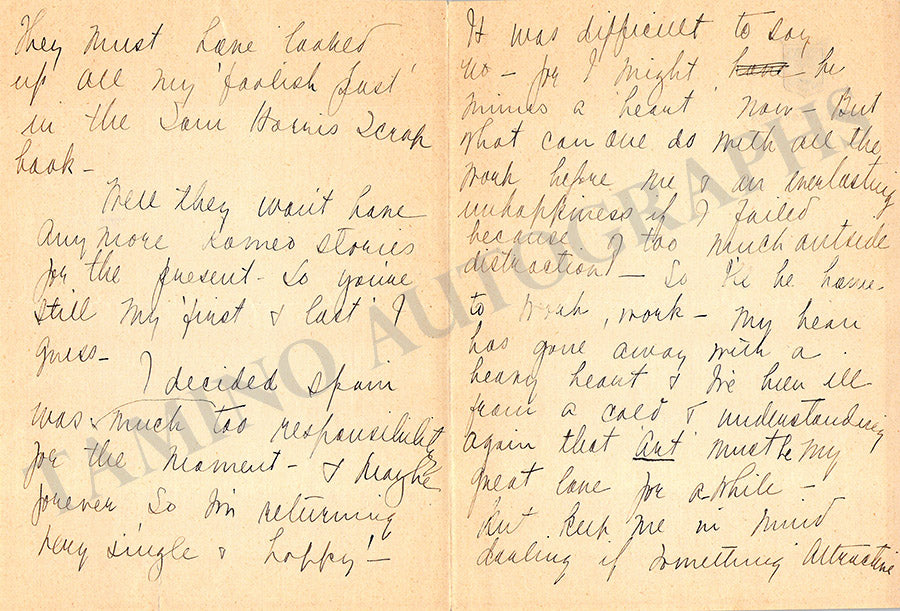 They must have looked
up all my 'foolish past'
in the Sam Harris Scrap
book -
Well they wont have
any more Romeo stories
for the present - So you're
still my 'first & last' I
guess -
I decided Spain
was much too responsibility
for the moment - & maybe
forever So I'm returning
very single & happy! -
It was difficult to say
no - for I might have be
minus a 'heart' now - But
what can one do with all the
work before me & an everlasting
unhappiness if I failed
because I too much outside
distraction! - So I'll be home
to work, work - My
has gone away with a
heavy heart & I've been ill
from a cold & understanding
again that Art must be my
great love for a while -
But keep me in mind
darling if something attractive
TAMINO AUTOGRAPHS